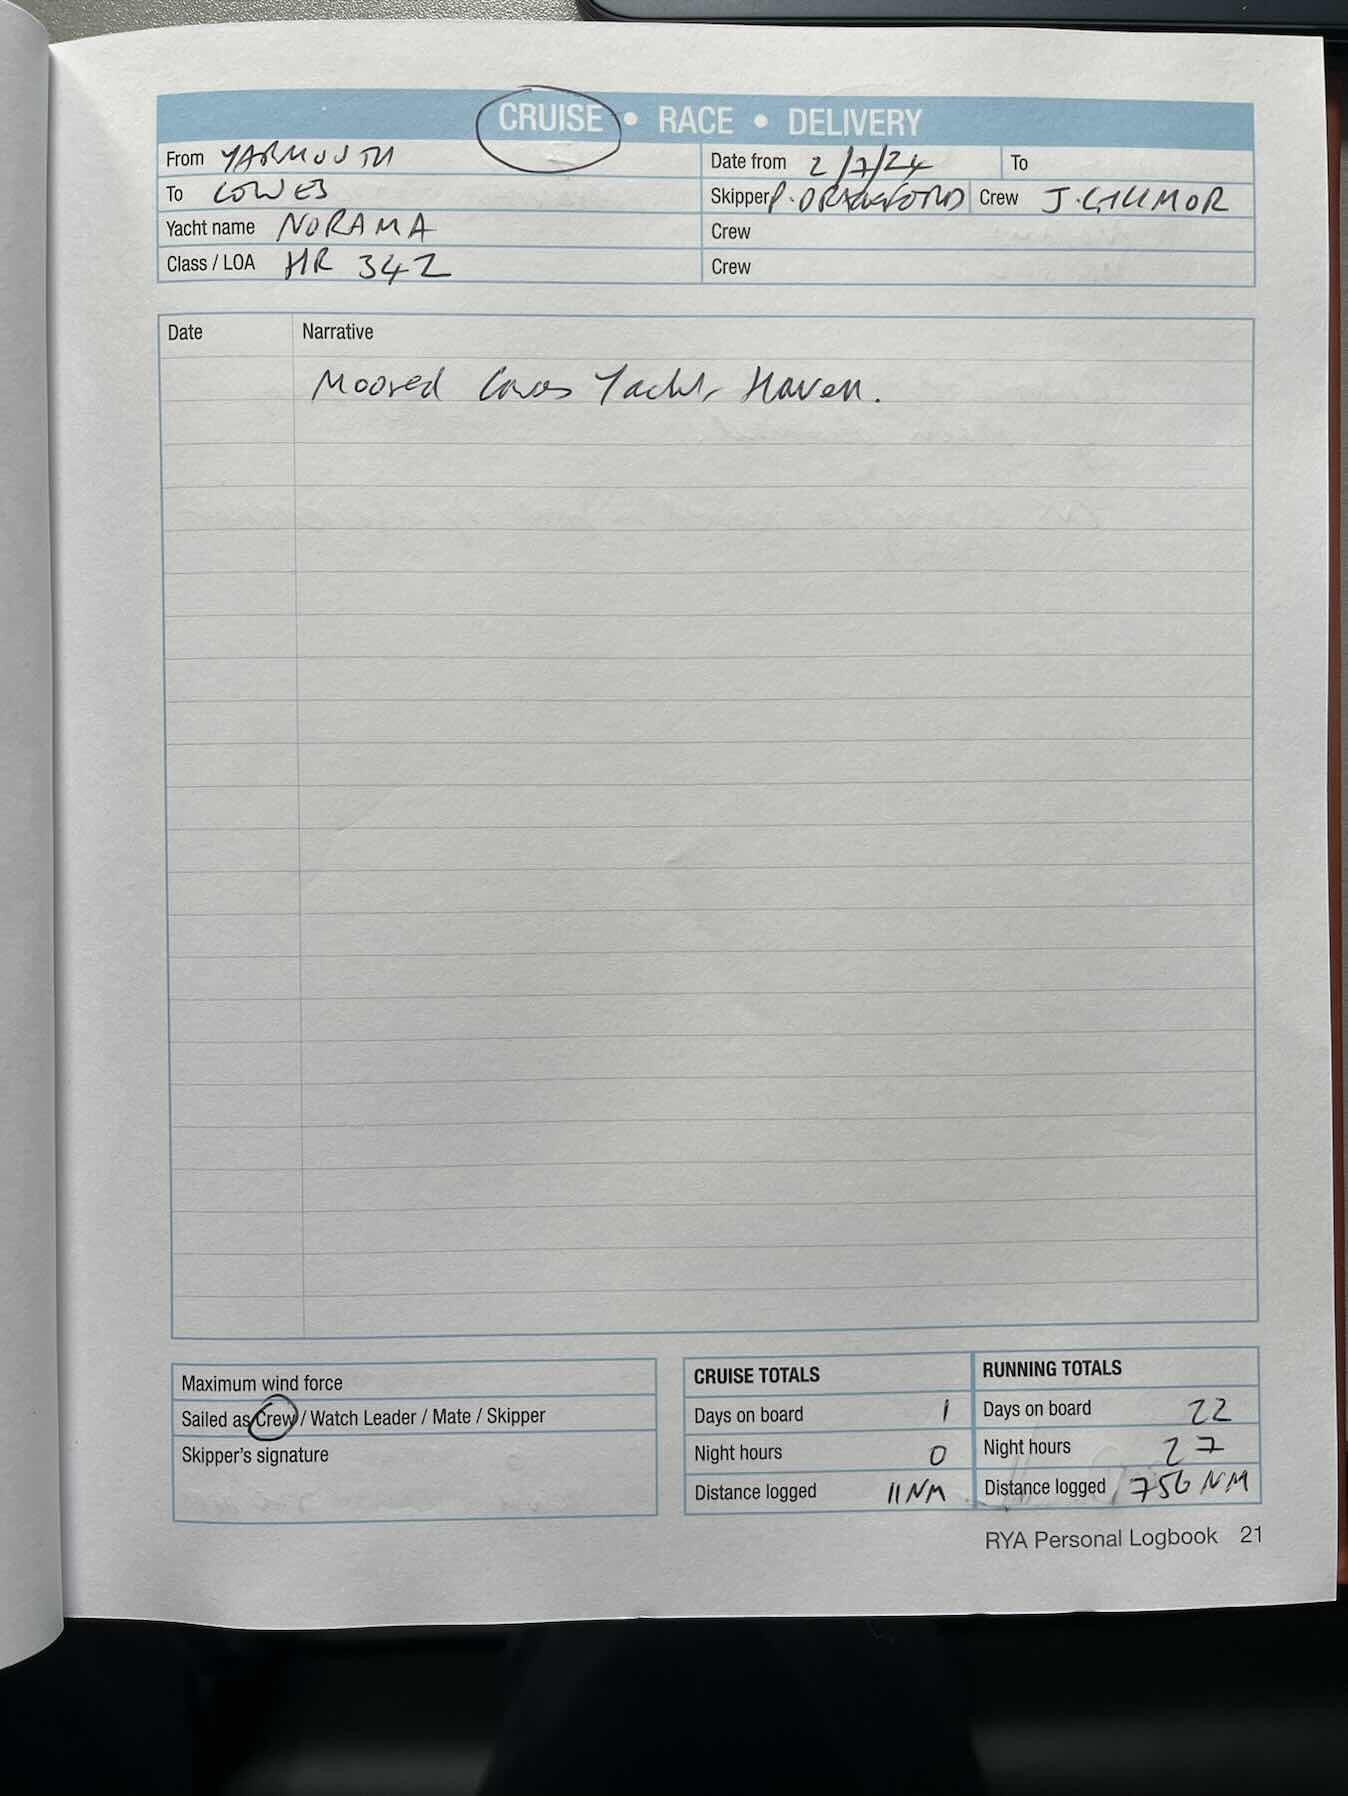 CRUISE • RACE • DELIVERY
From YARMOUTH Date from 2/7/24 To
To COWES Skipper P. Crew J. GILLMOR
Yacht name NORAMA Crew
Class / LOA HR 342 Crew
Date Narrative
Moored Cowes Yacht Haven.
Maximum wind force
Sailed as Crew / Watch Leader / Mate / Skipper
Skipper's signature
CRUISE TOTALS
Days on board 1
Night hours 0
Distance logged 11NM
RUNNING TOTALS
Days on board 22
Night hours 27
Distance logged 756 NM
RYA Personal Logbook 21